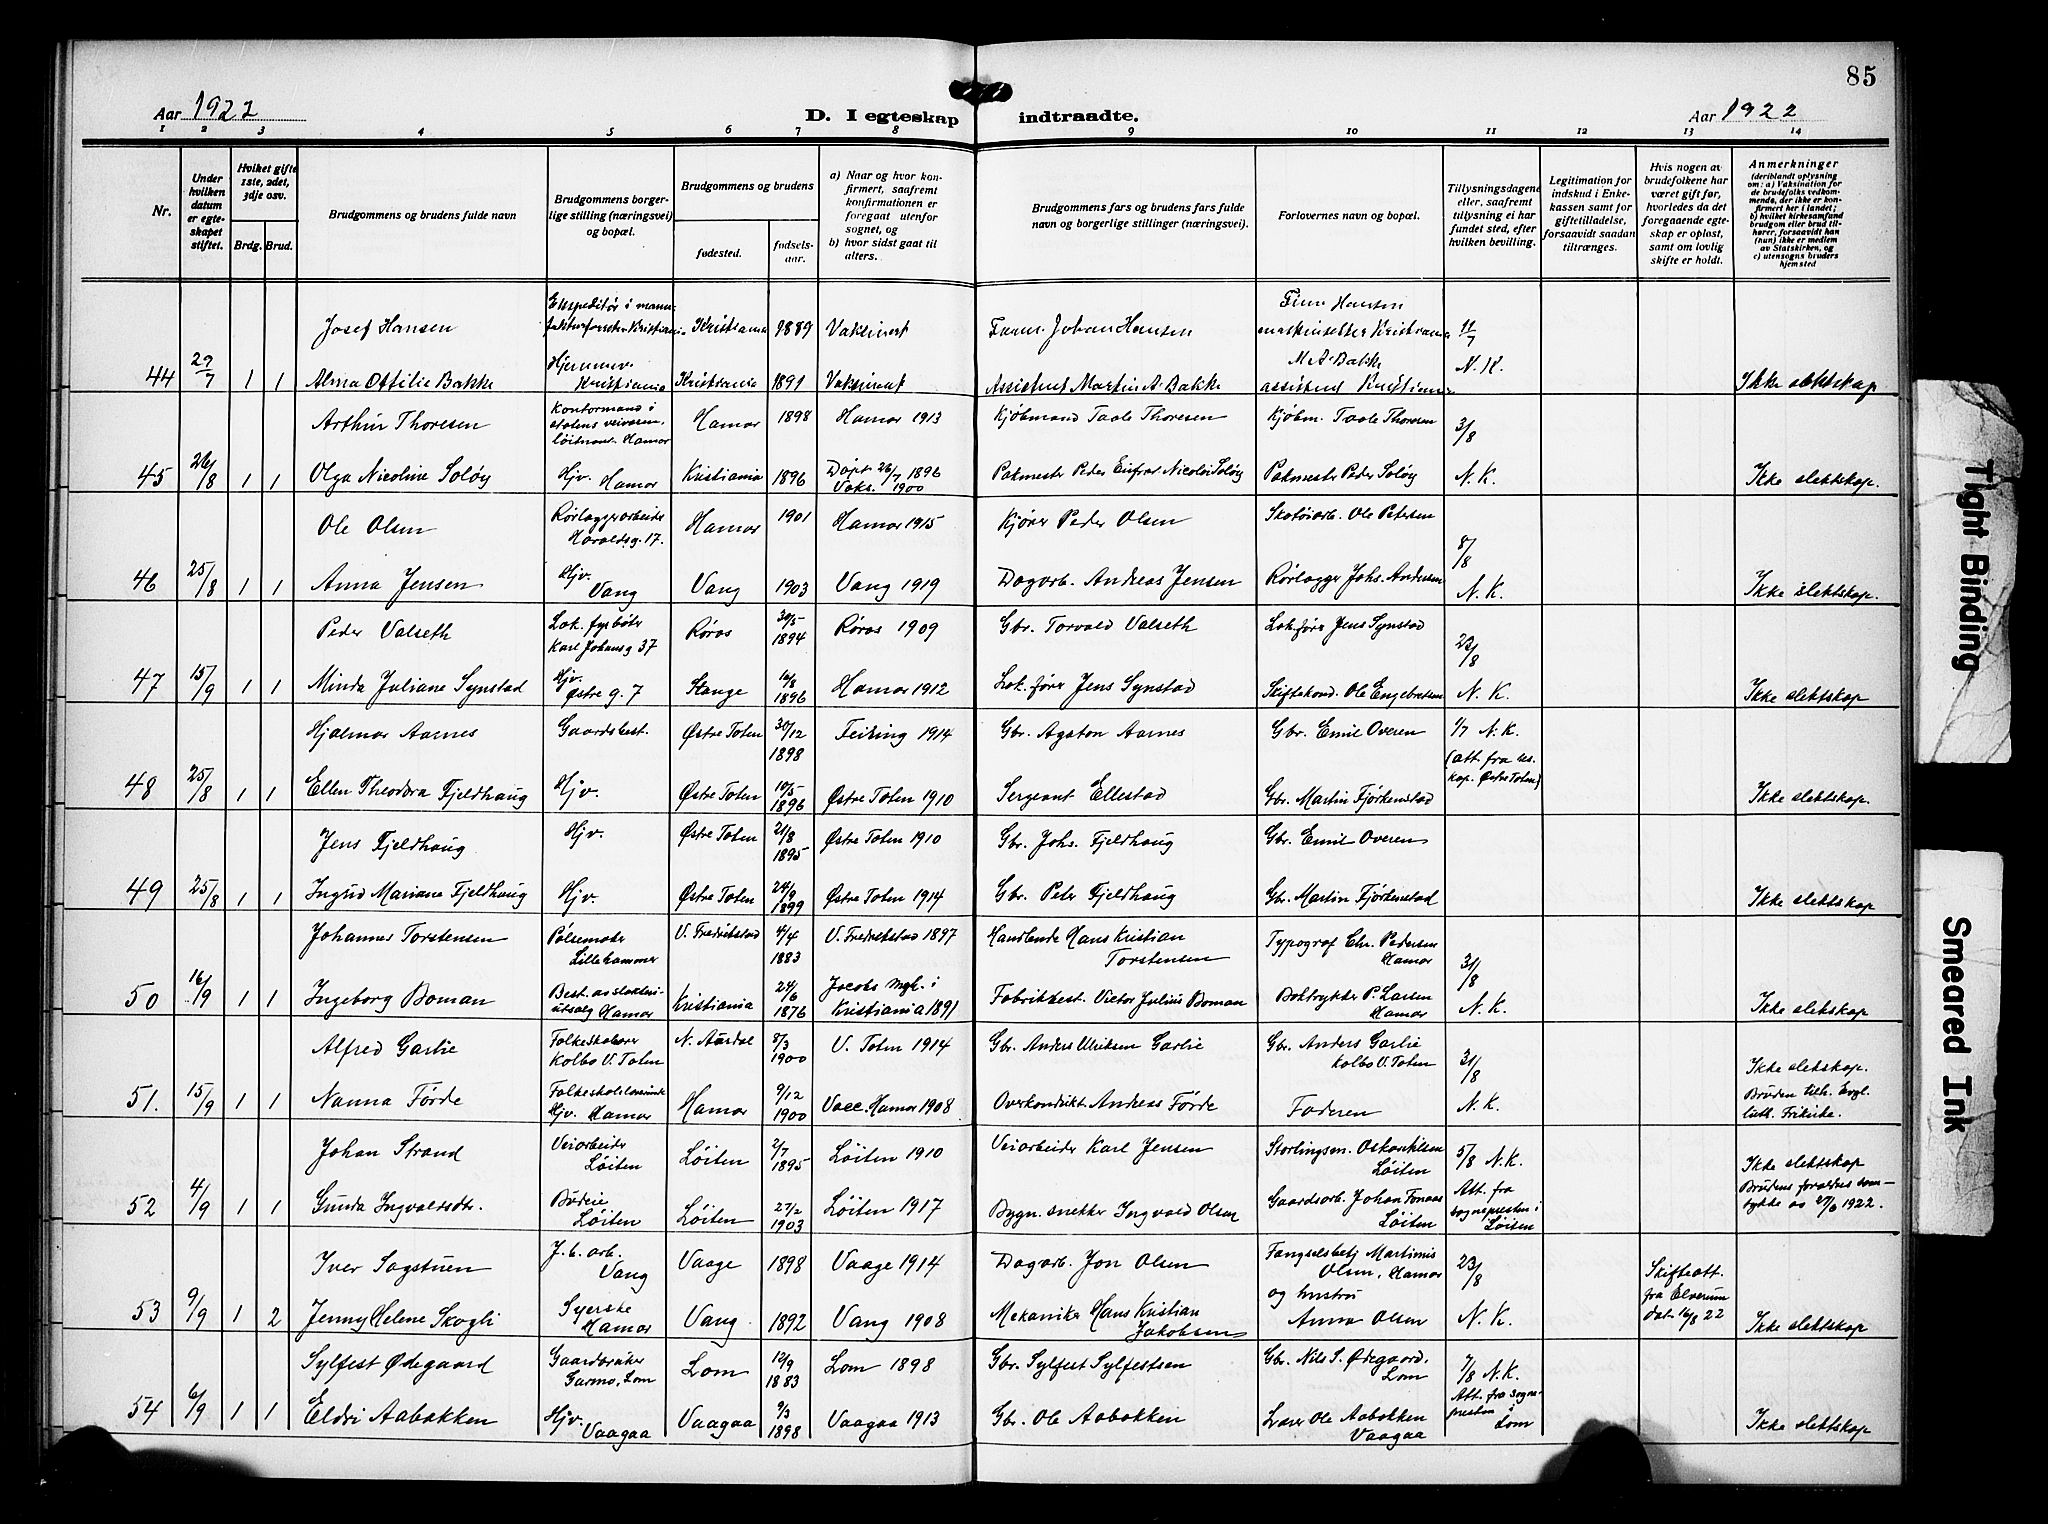 85
Aar 1922
D. I egteskap indtraadte.
Aar 1922
1 2 3 4 5 6 7 8 9 10 11 12 13 14
Nr.
Under hvilken datum er egteskapet stiftet.
Hvilket gifte 1ste, 2det, 3dje osv.
Brdg. Brud.
Brudgommens og brudens fulde navn
Brudgommens borgerlige stilling (næringsvei) og bopæl.
Brudgommens og brudens
fødested.
fødselsaar.
a) Naar og hvor konfirmert, saafremt konfirmationen er foregaat utenfor sognet, og
b) hvor sidst gaat til alters.
Brudgommens fars og brudens fars fulde navn og borgerlige stillinger (næringsvei).
Forlovernes navn og bopæl.
Tillysningsdagene eller, saafremt tillysning ei har fundet sted, efter hvilken bevilling.
Legitimation for indskud i Enkekassen samt for giftetilladelse, forsaavidt saadan tiltrænges.
Hvis nogen av brudefolkene har været gift før, hvorledes da det foregaaende egteskap er opløst, samt om lovlig skifte er holdt.
Anmerkninger (deriblandt oplysning om: a) Vaksination for de brudefolks vedkommende, der ikke er konfirmert her i landet; b) hvilket kirkesamfund brudgom eller brud tilhører, forsaavidt han (hun) ikke er medlem av Statskirken, og c) utensogns bruders hjemsted
Josef Hansen Kristiania 1889 Vaksinert Johan Hansen 11/7
44 29/7 1 1 Alma Ottilie Bakke Kristiania Kristiania 1891 Vaksinert Assistent Martin A. Bakke assistent Kristiania N. K. Ikke slektskap
Arthur Thoresen Kontormand i statens veivesen, løitnant. Hamar Hamar 1898 Hamar 1913 Kjøbmand Taale Thoresen Kjøbm. Taale Thoresen 3/8
45 26/8 1 1 Olga Nicoline Soløy Hjv. Hamar Kristiania 1896 Døpt 26/7 1896 Vaks. 1900 Pakmester Peder Nicolai Soløy Pakmester Peder Soløy N. K. Ikke slektskap.
Ole Olsen Rørlæggerarbeider Haraldsg. 17. Hamar 1901 Hamar 1915 Kjører Peder Olsen Skotøiarb. Ole Petersen 8/8
46 25/8 1 1 Anna Jensen Hjv. Vang Vang 1903 Vang 1919 Dagarb. Andreas Jensen Rørlægger Johs. Andersen N. K. Ikke slektskap.
Peder Valseth Lok. fyrbøter Karl Johansg 37 Røros 30/5 1894 Røros 1909 Gbr. Torvald Valseth Lok. fører Jens Synstad 22/8
47 15/9 1 1 Minda Juliane Synstad Hjv. Østre g. 7 Stange 1896 Hamar 1912 Lok. fører Jens Synstad Skiftekond. Ole Engebretsen N. K. Ikke slektskap
Hjalmar Aarnes Gaardsbest. Østre Toten 30/12 1898 Feiring 1914 Gbr. Agaton Aarnes Gbr. Emil Overen 1/7 N. K.
48 25/8 1 1 Ellen Theodora Fjeldhaug Hjv. Østre Toten 10/5 1896 Østre Toten 1910 Sergeant Ellestad Gbr. Martin Fjørkenstad (att. fra res. kap. Østre Toten) Ikke slektskap.
Jens Fjeldhaug Hjv. Østre Toten 21/8 1895 Østre Toten 1910 Gbr. Johs. Fjeldhaug Gbr. Emil Overen
49 25/8 1 1 Ingrid Mariane Fjeldhaug Hjv. Østre Toten 24/9 1899 Østre Toten 1914 Gbr. Peter Fjeldhaug Gbr. Martin Fjørkenstad Ikke slektskap
Johannes Torstensen Pølsemaker Lillehammer V. Fredrikstad 4/4 1883 V. Fredrikstad 1897 Handlende Hans Kristian Torstensen Typograf Chr. Pedersen Hamar 31/8
50 16/9 1 1 Ingeborg Boman Best. av slakteriutsalg Hamar Kristiania 24/6 1876 Jacobs mgh. i Kristiania 1891 Fabrikbest. Victor Julius Boman Boktrykker P. Larsen Hamar N. K. Ikke slektskap
Alfred Garlie Folkeskolelærer Kolbo V. Toten N. Aurdal 8/3 1900 V. Toten 1914 Gbr. Anders Ulriksen Garlie Gbr. Anders Garlie Kolbo V. Toten 31/8 Ikke slektskap.
51. 15/9 1 1 Nanna Førde Folkeskolelærerinde Hjv. Hamar Hamar 9/12 1900 Vacc. Hamar 1908 Overkondukt. Andreas Førde Faderen N. K. Bruden tilh. Evgl. luth. Frikirke.
Johan Strand Veiarbeider Løiten Løiten 2/7 1895 Løiten 1910 Veiarbeider Karl Jensen Storlingsm. Oskar Løiten 5/8 N. K. Ikke slektskap
52 4/9 1 1 Gunda Ingvaldsdtr. Budeie Løiten Løiten 27/2 1903 Løiten 1917 Bygn. snekker Ingvald Olsen Gaardsarb. Johan Løiten Att. fra sognepresten i Løiten Brudens forældres samtykke av 1922.
Iver Sagstuen J. b. arb. Vang Vaage 1898 Vaage 1914 Dagarb. Jon Olsen Fangselsbetj Martinius Olsen, Hamar 23/8 Skifteatt.
53 9/9 1 2 Jenny Helene Skogli Syerske Hamar Vang 1892 Vang 1908 Mekaniker Hans Kristian Jakobsen og hustru Anna Olsen N. K. fra Elverum dat. 16/8 22 Ikke slektskap
Sylfest Ødegaard Gaardbruker Garmo, Lom Lom 12/9 1883 Lom 1898 Gbr. Sylfest Sylfestsen Gbr. Nils S. Ødegaard, Lom 7/8 N. K.
54 6/9 1 1 Eldri Aabakken Hjv. Vaagaa Vaagaa 9/3 1898 Vaagaa 1913 Gbr. Ole Aabakken Lærer Ole Aabakken Vaagaa Att. fra sognepresten i Lom Ikke slektskap
Tight Binding
Smeared Ink